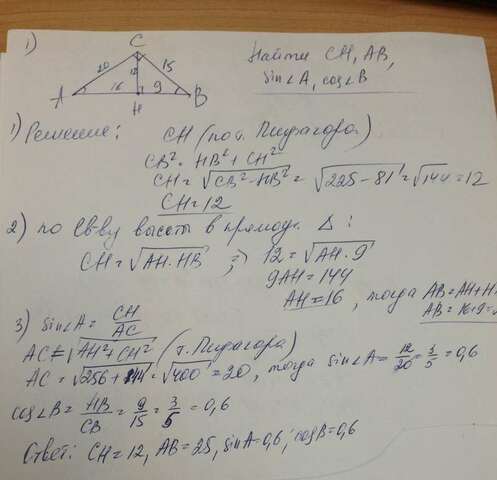 1)
C
20
15
12
A
16
9
B
H
Найти CH, AB,
sin∠A, cos∠B
1) Решение: CH (по т. Пифагора)
CB² = HB² + CH²
CH = √CB² - HB² = √225 - 81 = √144 = 12
CH = 12
2) по св-ву высоты в прямоуг. Δ:
CH = √AH · HB ; ⇒ 12 = √AH · 9
9AH = 144
AH = 16, тогда AB = AH + H
AB = 16 + 9 =
3) sin∠A = CH/AC
AC = √AH² + CH² (т. Пифагора)
AC = √256 + 144 = √400 = 20, тогда sin∠A = 12/20 = 3/5 = 0,6
cos∠B = HB/CB = 9/15 = 3/5 = 0,6
Ответ: CH = 12, AB = 25, sinA = 0,6; cosB = 0,6